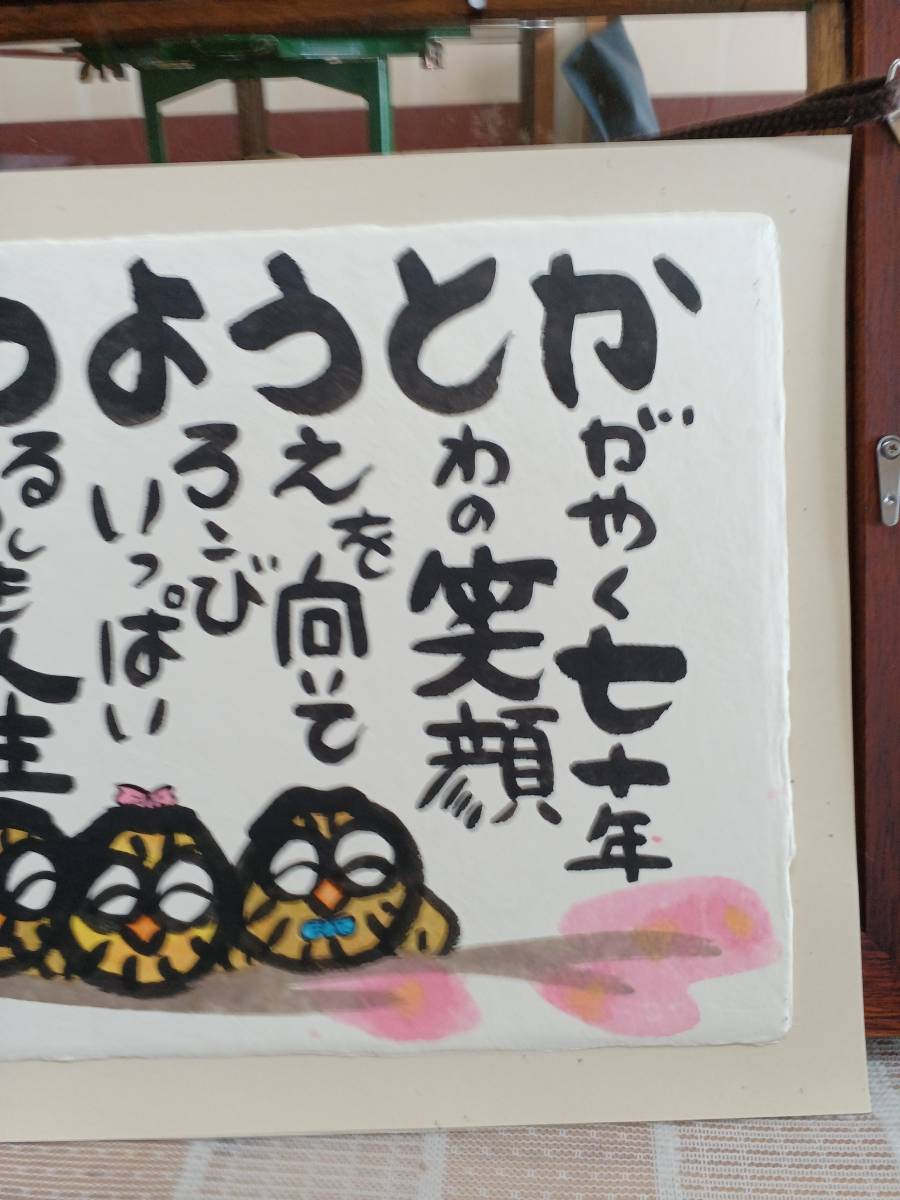 かがやく七十年
とわの笑顔
うえを向いて
よろこび
いっぱい
るし
人生